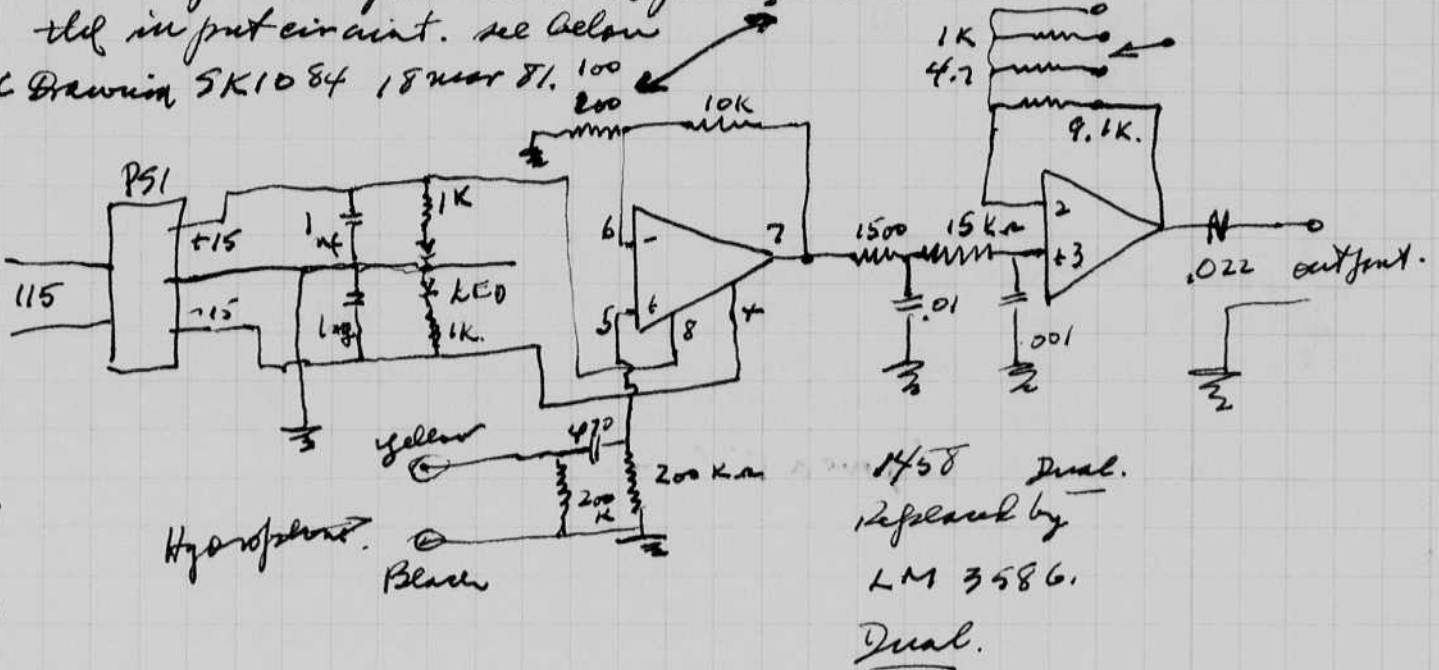 the input circuit. see below
Drawing SK1084 18 mar 81.
100
200
10K
1K
4.7
9.1K.
PS1
+15
-15
115
1
1K
LED
1K.
6
-
5
+
7
8
4
1500
15K Ω
.01
.001
2
+3
.022
output.
yellow
470
200 K Ω
200
K
Hydrophone.
Black
1458 Dual.
Replaced by
LM 358G.
Dual.